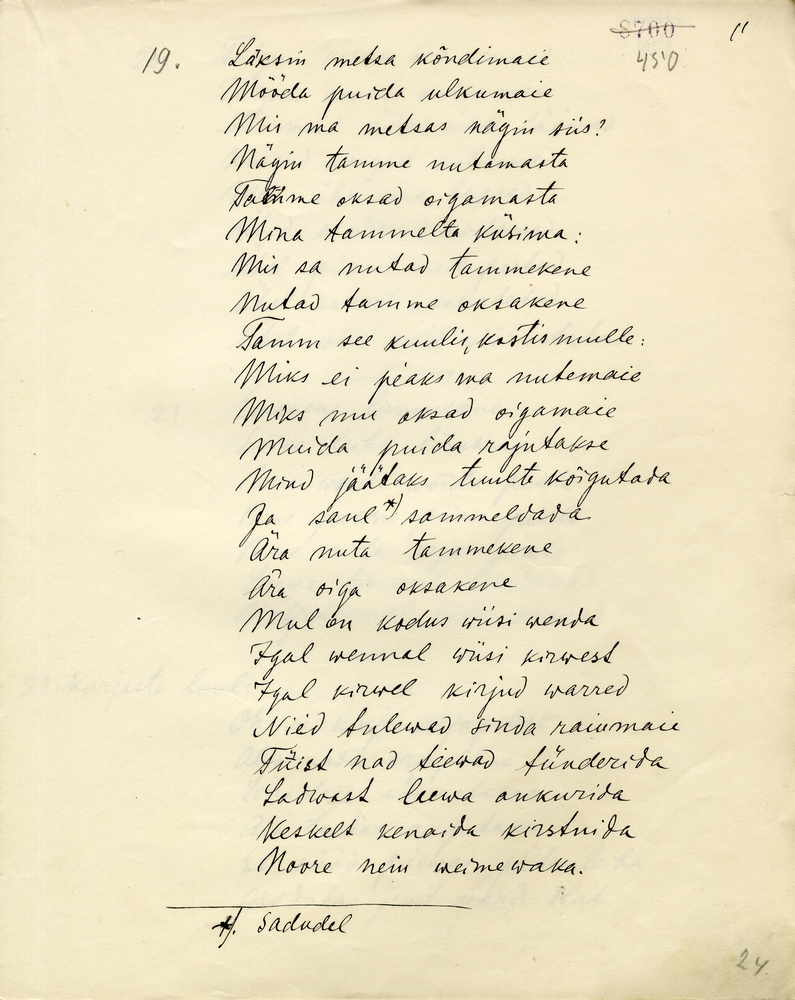 8700 11
19. Läksin metsa kõndimaie 450
Mööda puida ulkumaie
Mis ma metsas nägin siis?
Nägin tamme nutamasta
Tamme oksad oigamasta
Mina tammelta küsima:
Mis sa nutad tammekene
Nutad tamme oksakene
Tamm see kuulis, kostis mulle:
Miks ei peaks ma nutemaie
Miks mu oksad oigamaie
Muida puida rajutakse
Mind jäätaks tuulte kõigutada
Ja saul *) sammeldada
Ära nuta tammekene
Ära oiga oksakene
Mul on kodus wiisi wenda
Igal wennal wiisi kirwest
Igal kirwel kirjud warred
Nied tulewad sinda raiumaie
Tüist nad teewad tünderida
Ladwast laewa ankurida
Keskelt kenaida kirstuida
Noore nein weimewaka.
*). Sadudel
24.